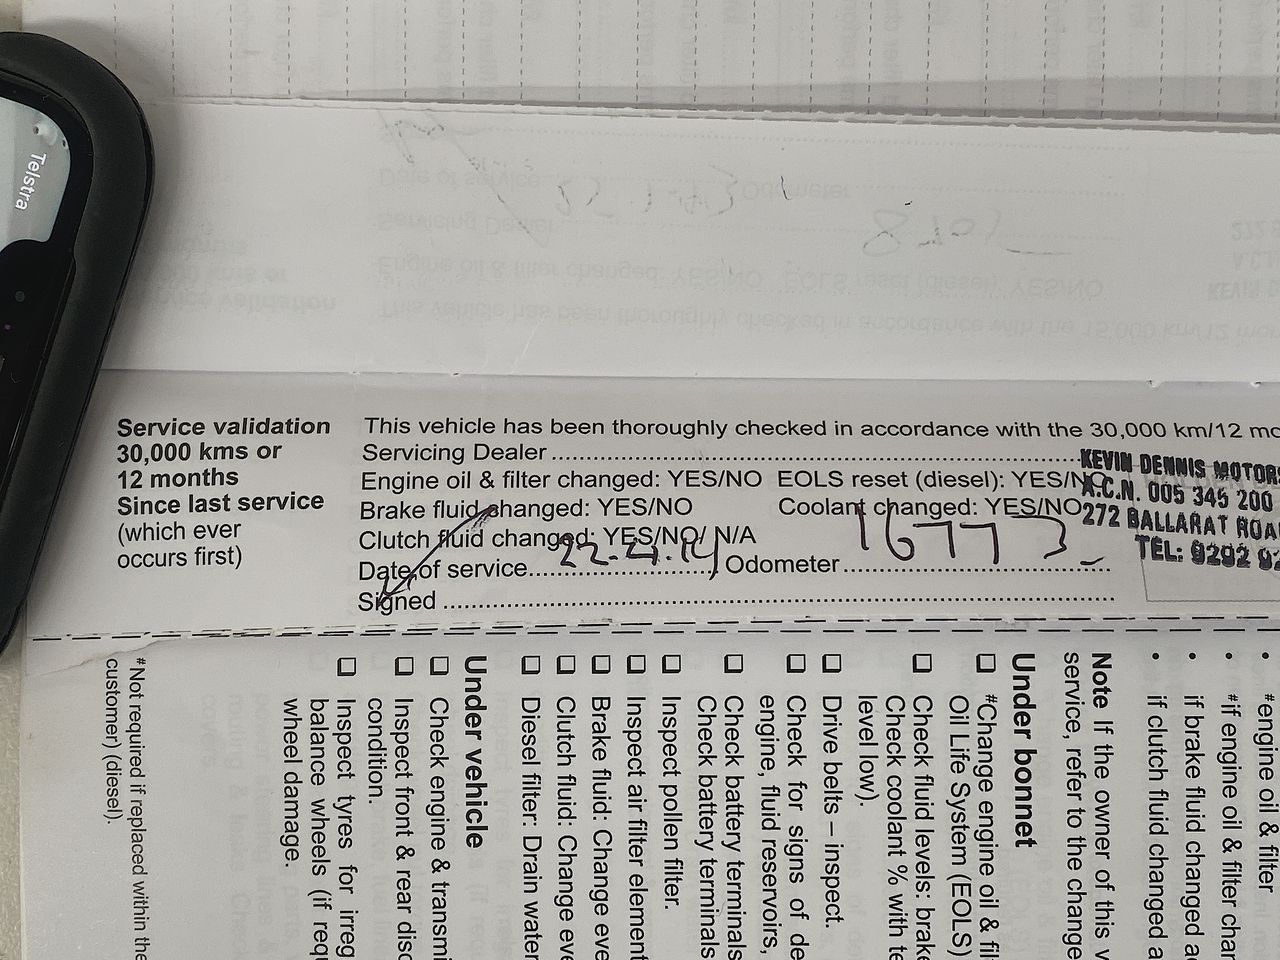 Telstra
Service validation
30,000 kms or
12 months
Since last service
(which ever
occurs first)
This vehicle has been thoroughly checked in accordance with the 30,000 km/12 mo
Servicing Dealer
Engine oil & filter changed: YES/NO EOLS reset (diesel): YES/NO
Brake fluid changed: YES/NO Coolant changed: YES/NO
Clutch fluid changed: YES/NO/ N/A
Date of service 22.4.14 Odometer 16773
Signed
KEVIN DENNIS MOTORS
A.C.N. 005 345 200
272 BALLARAT ROA
TEL: 9292 92
#engine oil & filter
#if engine oil & filter chan
• if brake fluid changed ac
• if clutch fluid changed a
Note If the owner of this v
service, refer to the change
Under bonnet
#Change engine oil & fil
Oil Life System (EOLS)
Check fluid levels: brake
Check coolant % with te
level low).
Drive belts – inspect.
Check for signs of de
engine, fluid reservoirs,
Check battery terminals
Check battery terminals
Inspect pollen filter.
Inspect air filter element
Brake fluid: Change eve
Clutch fluid: Change eve
Diesel filter: Drain water
Under vehicle
Check engine & transmi
Inspect front & rear disc
condition.
Inspect tyres for irreg
balance wheels (if requ
wheel damage.
#Not required if replaced within the
customer) (diesel).